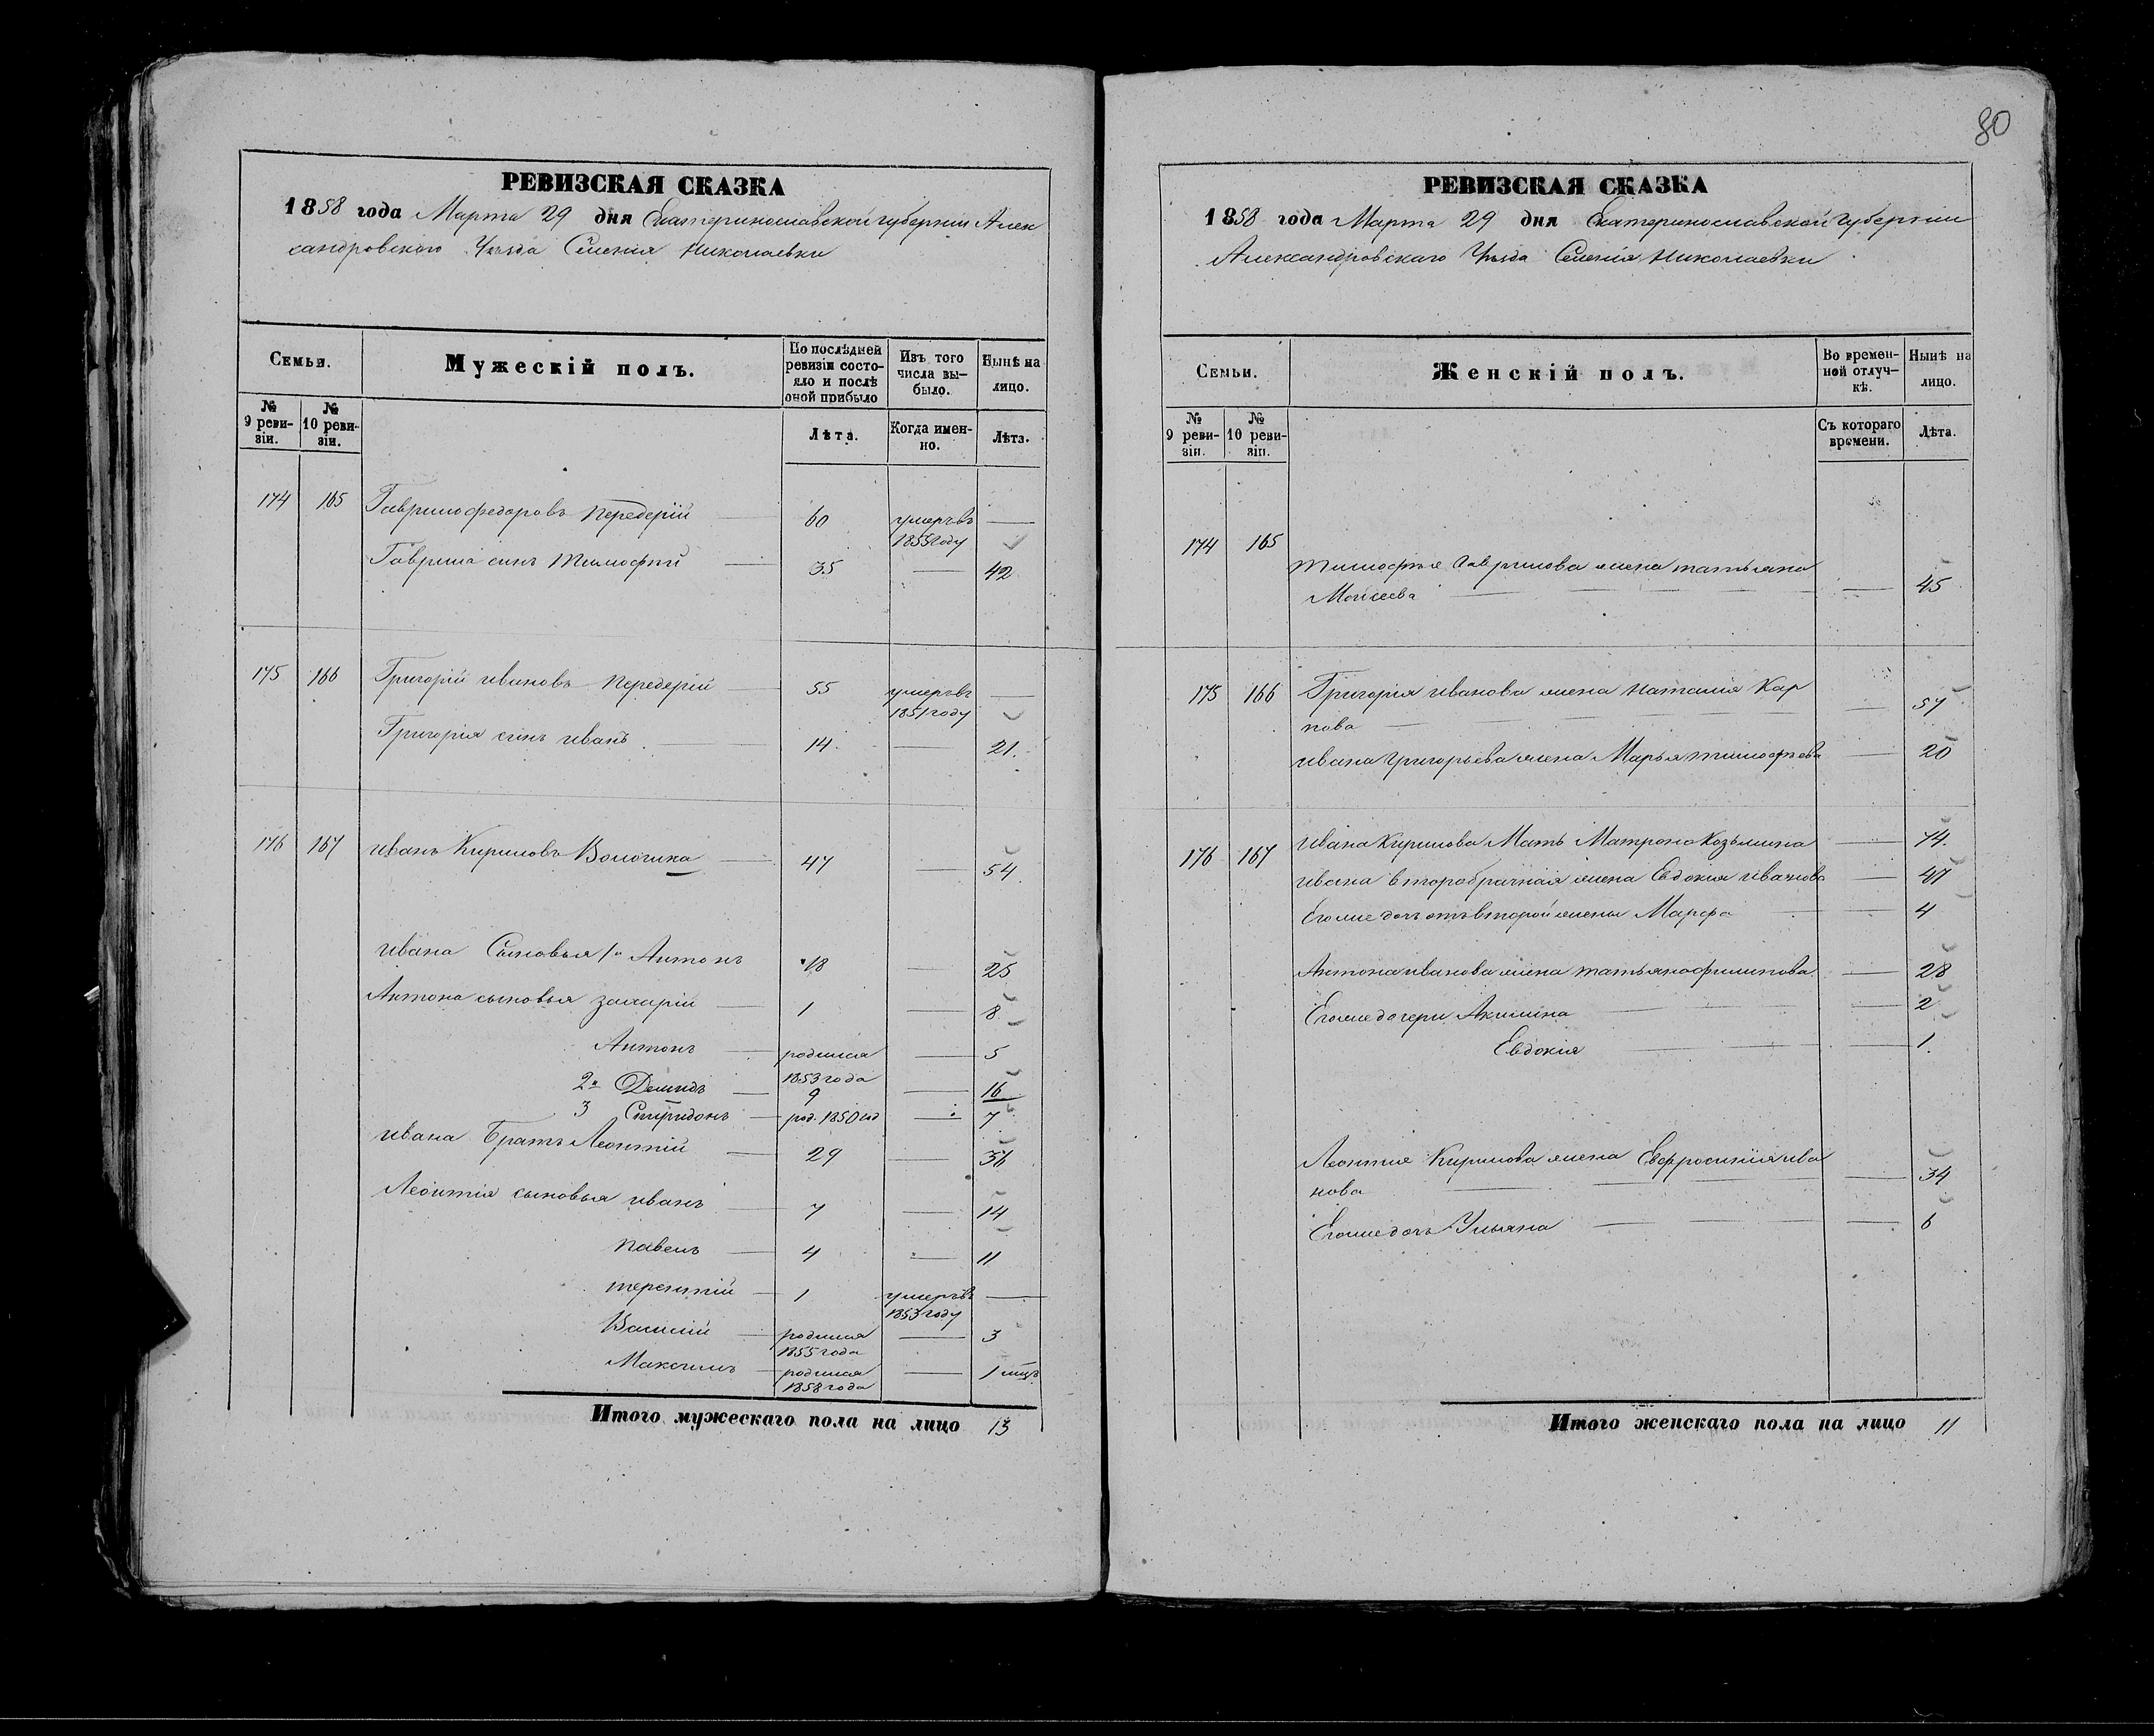 РЕВИЗСКАЯ СКАЗКА
1858 года Марта 29 дня Екатеринославской губернии Алек
сандровского Уезда Селения Николаевки
Семьи.
Мужескій полъ.
По послѣдней ревизіи состояло и послѣ оной прибыло
Изъ того числа вы-было.
Нынѣ на лицо.
№ 9 реви-зіи.
№ 10 реви-зіи.
Лѣта.
Когда имен-но.
Лѣта.
174 165 Гаврило федоровъ Передерій 60 умеръ въ
1855 году
Гаврила сынъ Тимофей 35 42
175 166 Григорій ивановъ Передерій 55 умеръ въ
1851 году
Григорія сынъ иванъ 14 21
176 167 иванъ Кириловъ Волочика 47 54
ивана Сыновья 1й Антонъ 18 25
Антона сыновья захарій 1 8
Антонъ родился 5
1853 года
2й Демидъ 9 16
3 Спиридонъ род. 1850 год 7
ивана Братъ Леонтій 29 36
Леонтія сыновья иванъ 7 14
Павелъ 4 11
терентій 1 умеръ въ
1853 году
Василій родился 3
1855 года
Максимъ родился 1 мцъ
1858 года
Итого мужескаго пола на лицо 13
80
РЕВИЗСКАЯ СКАЗКА
1858 года Марта 29 дня Екатеринославской Губернии
Александровскаго Уезда Селенія Николаевки
Семьи.
Женскій полъ.
Во времен-ной отлуч-кѣ.
Нынѣ на лицо.
№ 9 реви-зіи.
№ 10 реви-зіи.
Съ котораго времени.
Лѣта.
174 165
Тимофея Гаврилова жена татьяна
Моисеева 45
175 166 Григорія иванова жена Наталія Кар
пова 57
ивана Григорьева жена Марья тимофеева 20
176 167 ивана Кирилова Мать Матрона Козьмина 74
ивана второбрачная жена Евдокия иванова 47
Егоже дочь отъ второй жены Марфа 4
Антона иванова жена татьяна филипова 28
Егоже дочери Акилина 2
Евдокія 1
Леонтия Кирилова жена Евфросинія ива
нова 34
Егоже дочь Ульяна 6
Итого женскаго пола на лицо 11